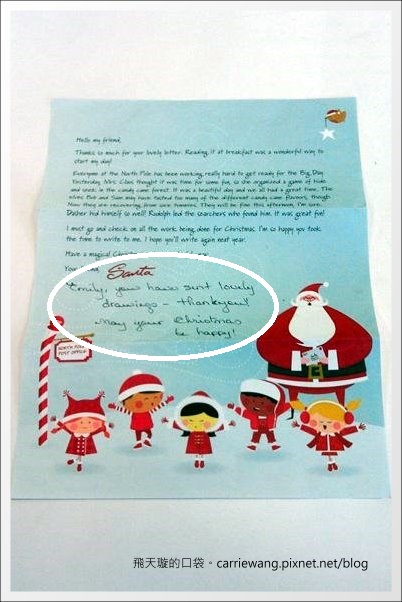 Hello my friend,
Thanks so much for your lovely letter. Reading it at breakfast was a wonderful way to
start my day!
Everyone at the North Pole has been working really hard to get ready for the Big Day.
Yesterday, Mrs. Claus thought it was time for some fun, so she organized a game of hide
and seek in the candy cane forest. It was a beautiful day and we all had a great time. The
elves Pat and Sam may have tasted too many of the different candy cane flavors, though.
Now they are recovering from sore tummies. They will be fine this afternoon, I'm sure.
Dasher hid himself so well! Rudolph led the searchers who found him. It was great fun!
I must go and check on all the work being done for Christmas. I'm so happy you took
the time to write to me. I hope you'll write again next year.
Have a magical
Santa
Emily, you have sent lovely
drawings - thankyou!
May your Christmas
be happy!
NORTH POLE
POST OFFICE
飛天璇的口袋。carriewang.pixnet.net/blog